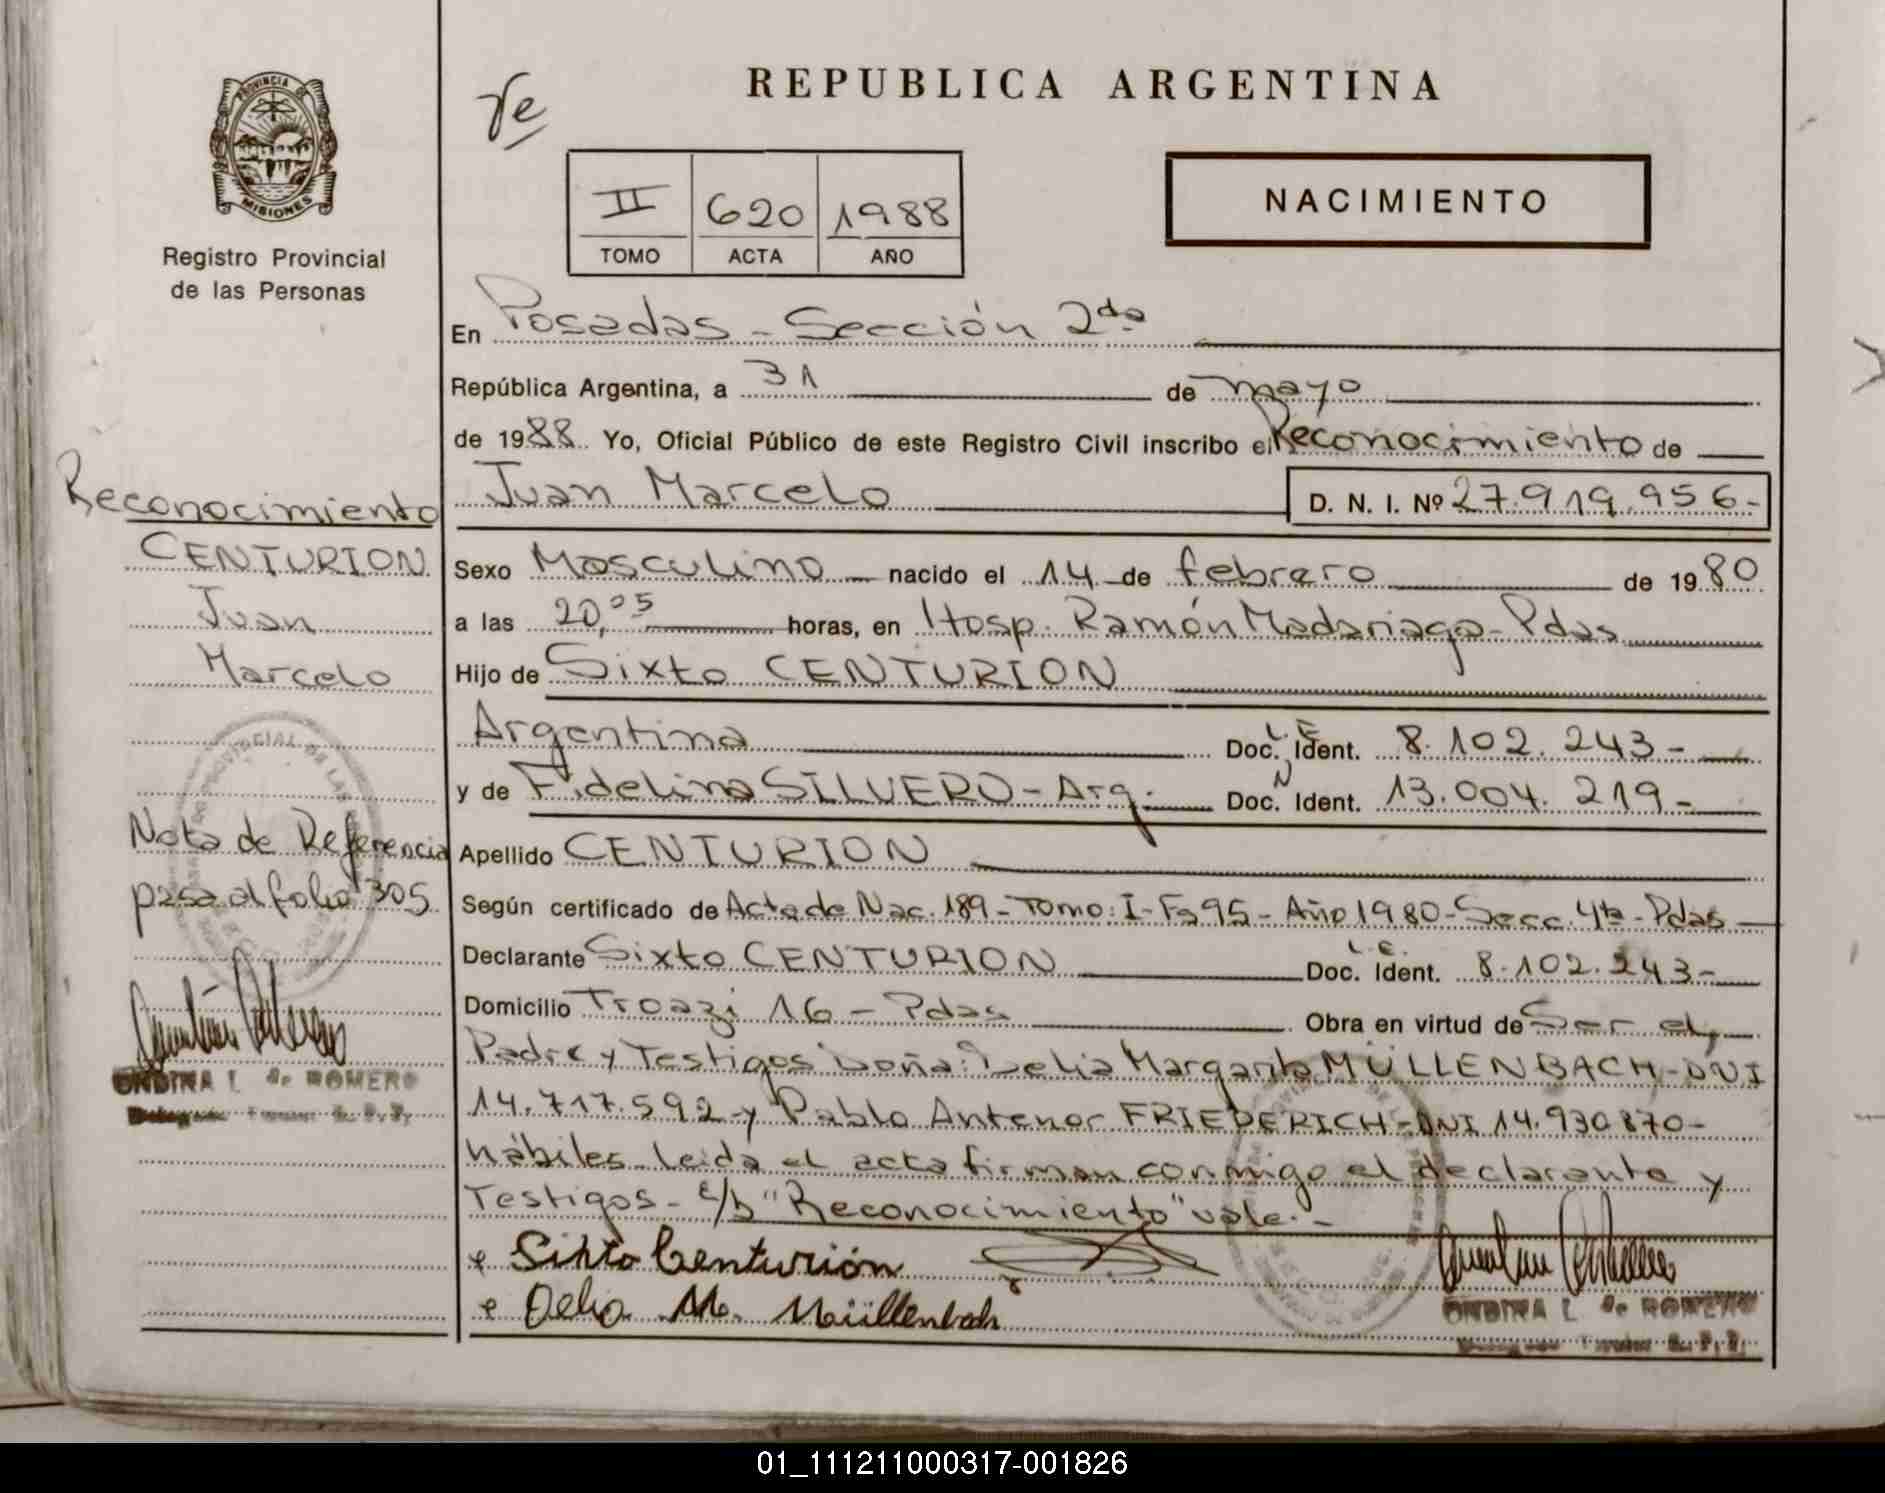 PROVINCIA DE
MISIONES
Registro Provincial
de las Personas
REPUBLICA ARGENTINA
NACIMIENTO
II 620 1988
TOMO ACTA AÑO
En Posadas - Sección 2da
República Argentina, a 31 de mayo
de 1988. Yo, Oficial Público de este Registro Civil inscribo el Reconocimiento de
Juan Marcelo D. N. I. Nº 27.919.956-
Sexo Masculino nacido el 14 de febrero de 1980
a las 20,05 horas, en Hosp. Ramón Madariaga - Pdas
Hijo de Sixto CENTURION
Argentina Doc. Ident. L.E. 8.102.243-
y de Fidelina SILVERO - Arg. Doc. Ident. 13.004.219-
Apellido CENTURION
Según certificado de Acta de Nac. 189 - Tomo: I - Fº 95 - Año 1980 - Secc. 4ta - Pdas
Declarante Sixto CENTURION Doc. Ident. L.E. 8.102.243-
Domicilio 16 - Pdas Obra en virtud de Ser el
Padre y Testigos Doña: Delia Margarita MÜLLENBACH - DNI
14.717.592 y Pablo Antenor FRIEDERICH - DNI 14.930.870-
hábiles leida el acta firman conmigo el declarante y
Testigos - E/b "Reconocimiento" vale. -
Sixto Centurión
Delia M. Müllenbach
ONDINA L. de ROMERO
Reconocimiento
CENTURION
Juan
Marcelo
Nota de Referencia
pasa al folio 305
ONDINA L. de ROMERO
01_111211000317-001826